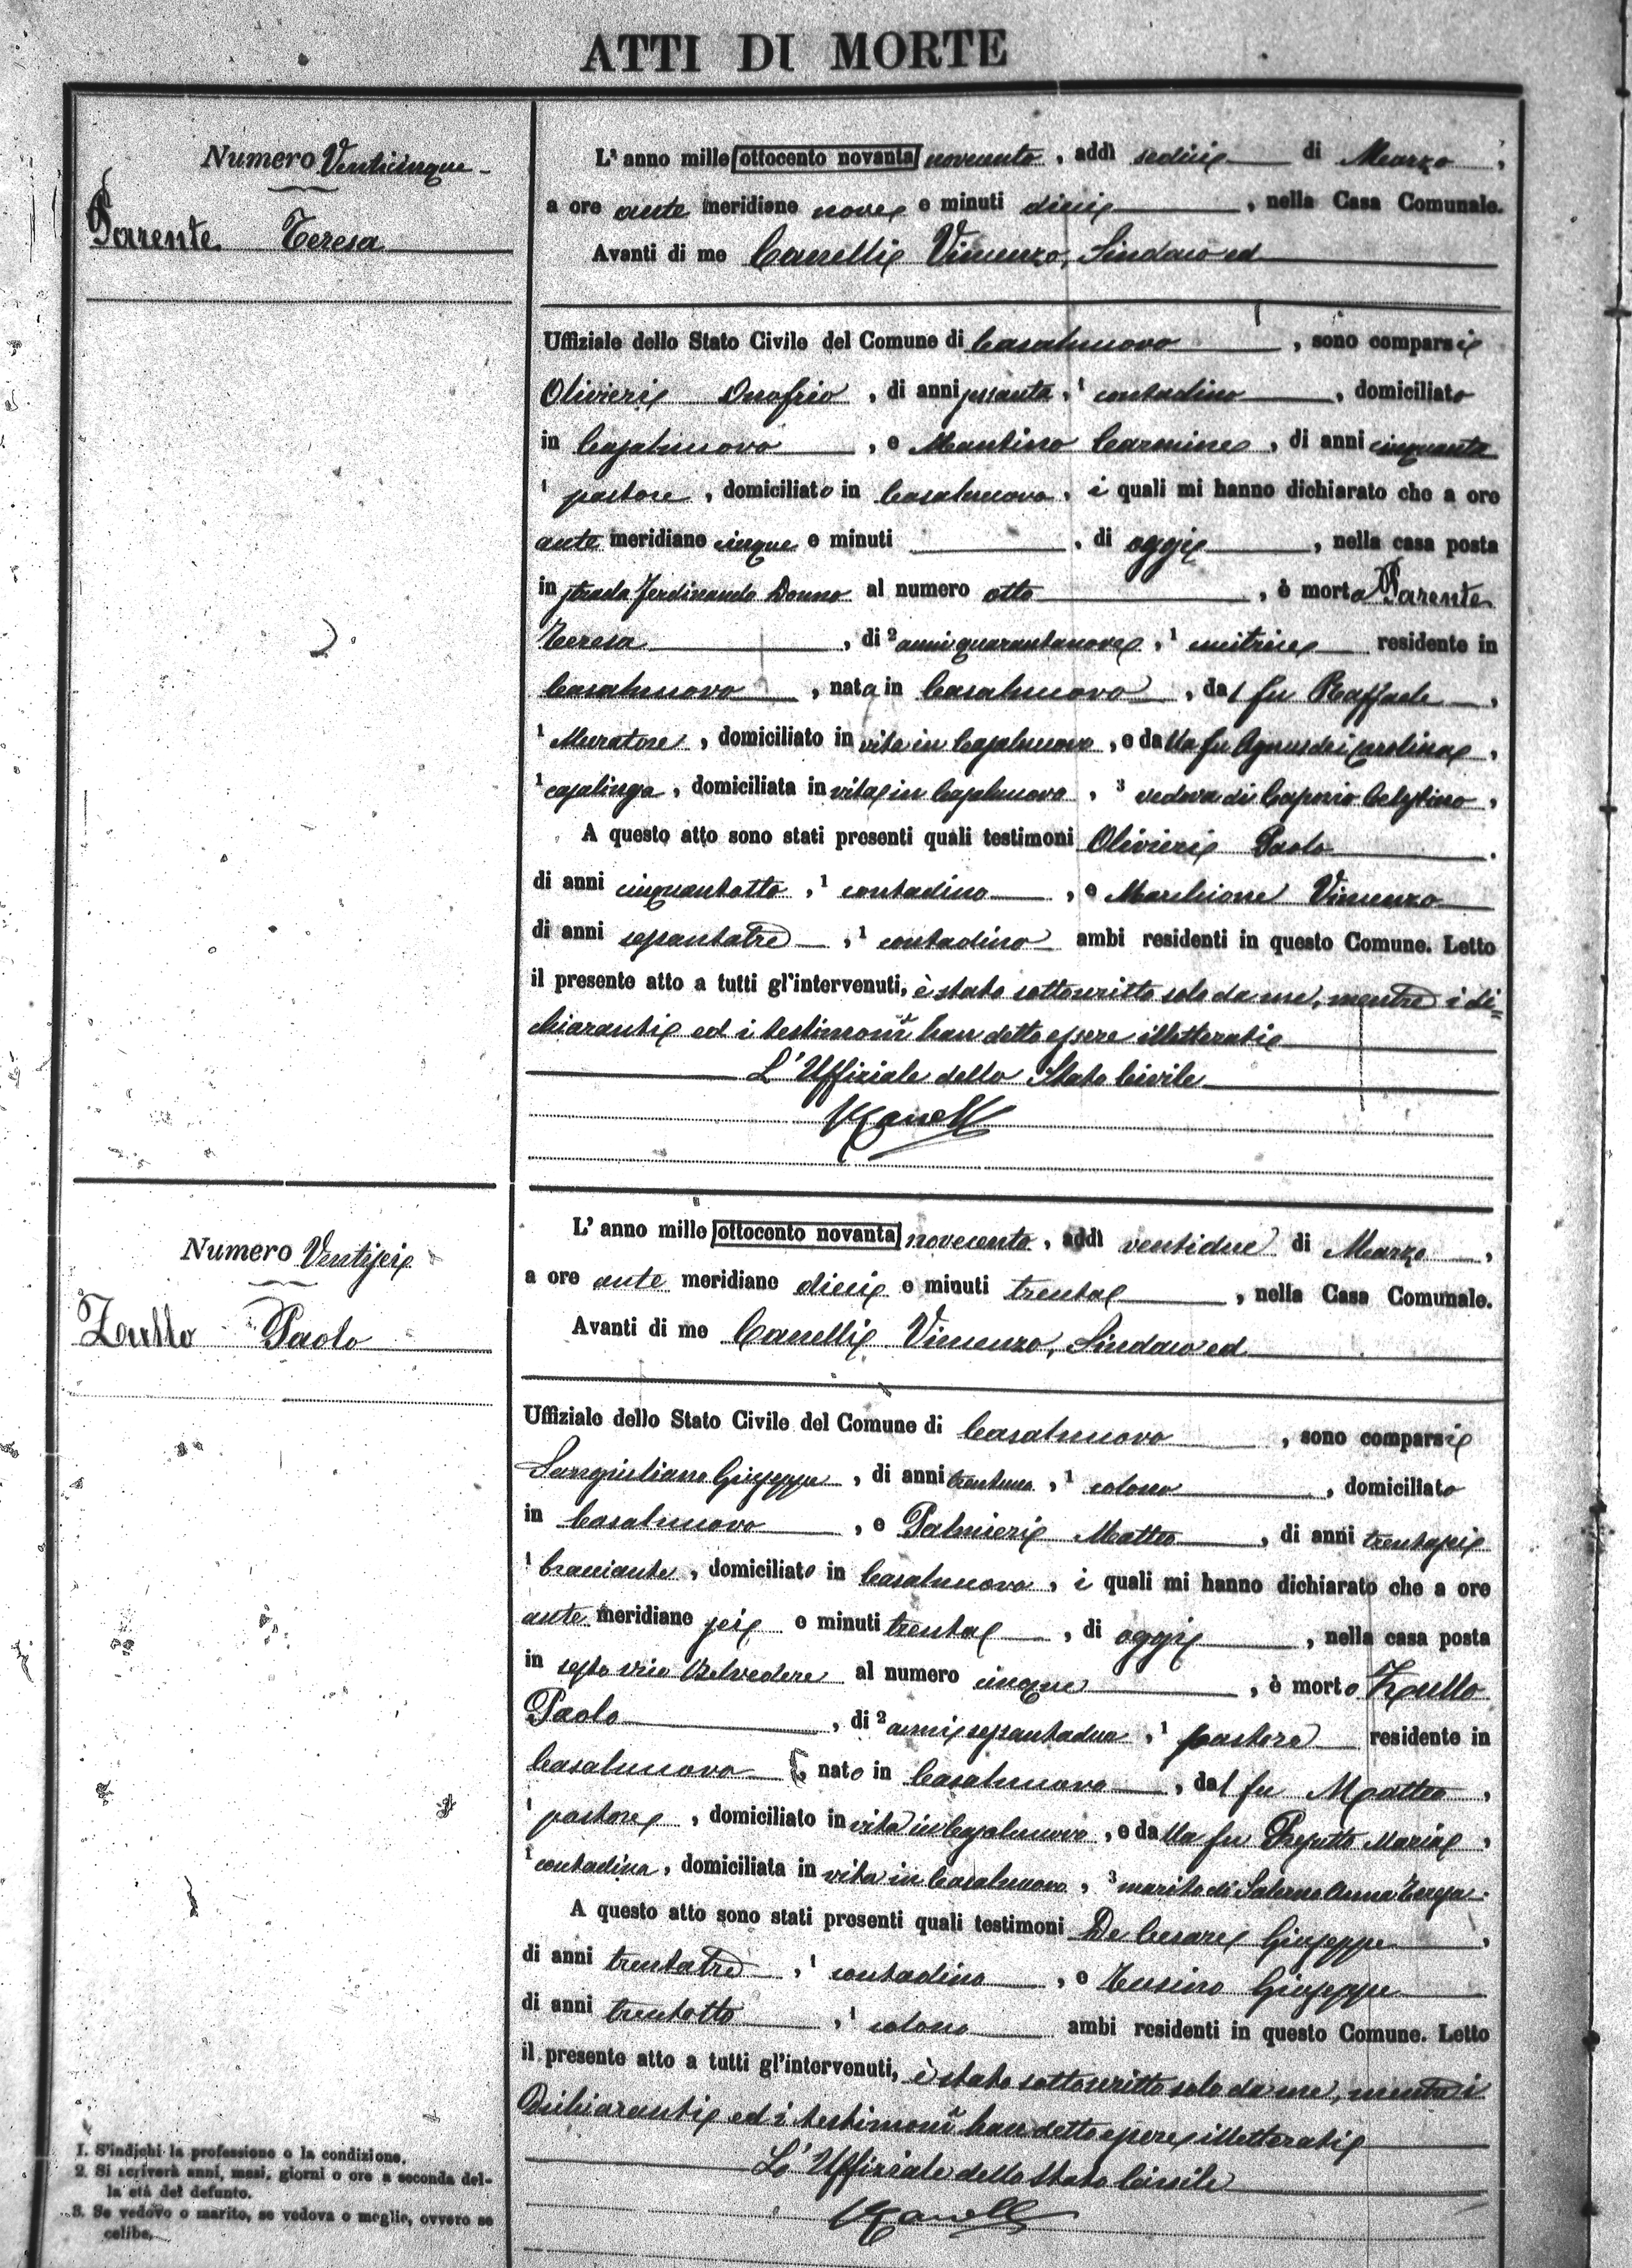 ATTI DI MORTE
Numero Venticinque
Parente Teresa
L'anno mille ottocento novanta novecento, addì sedici di Marzo,
a ore ante meridiane nove e minuti dieci, nella Casa Comunale.
Avanti di me Canelli Vincenzo, Sindaco ed
Uffiziale dello Stato Civile del Comune di Casalnuovo, sono comparsi
Olivieri Onofrio, di anni sessanta, 1 contadino, domiciliato
in Casalnuovo, e Mantino Carmine, di anni cinquanta
1 pastore, domiciliato in Casalnuovo, i quali mi hanno dichiarato che a ore
ante meridiane cinque e minuti , di oggi, nella casa posta
in strada Ferdinando Donno al numero otto, è morta Parente
Teresa, di 2 anni quarantanove, 1 cucitrice residente in
Casalnuovo, nata in Casalnuovo, dal fu Raffaele,
1 Muratore, domiciliato in vita in Casalnuovo, e dalla fu Agnusdei Carolina,
1 casalinga, domiciliata in vita in Casalnuovo, 3 vedova di Celestino,
A questo atto sono stati presenti quali testimoni Olivieri Paolo
di anni cinquantotto, 1 contadino, e Marchione Vincenzo
di anni sessantatre, 1 contadino ambi residenti in questo Comune. Letto
il presente atto a tutti gl'intervenuti, è stato sottoscritto solo da me, mentre i di=
chiaranti ed i testimonî han detto essere illetterati
L'Uffiziale dello Stato Civile
VCanelli
Numero Ventisei
Zullo Paolo
L'anno mille ottocento novanta novecento, addì ventidue di Marzo,
a ore ante meridiane dieci e minuti trenta, nella Casa Comunale.
Avanti di me Canelli Vincenzo, Sindaco ed
Uffiziale dello Stato Civile del Comune di Casalnuovo, sono comparsi
Sangiuliano Giuseppe, di anni trentuno, 1 colono, domiciliato
in Casalnuovo, e Palmieri Matteo, di anni trentasei
1 bracciante, domiciliato in Casalnuovo, i quali mi hanno dichiarato che a ore
ante meridiane sei e minuti trenta, di oggi, nella casa posta
in sesto vico Belvedere al numero cinque, è morto Zullo
Paolo, di 2 anni sessantadue, 1 pastore residente in
Casalnuovo, nato in Casalnuovo, dal fu Matteo,
1 pastore, domiciliato in vita in Casalnuovo, e dalla fu Maria,
1 contadina, domiciliata in vita in Casalnuovo, 3 marito di Salerno Anna Teresa.
A questo atto sono stati presenti quali testimoni De Cesare Giuseppe,
di anni trentatre, 1 contadino, e Tusino Giuseppe
di anni trentotto, 1 colono ambi residenti in questo Comune. Letto
il presente atto a tutti gl'intervenuti, è stato sottoscritto solo da me, mentre i
Dichiaranti ed i testimonî han detto essere illetterati
L'Uffiziale dello Stato Civile
VCanelli
1. S'indichi la professione o la condizione.
2. Si scriverà anni, mesi, giorni o ore a seconda del-
la età del defunto.
3. Se vedovo o marito, se vedova o moglie, ovvero se
celibe.